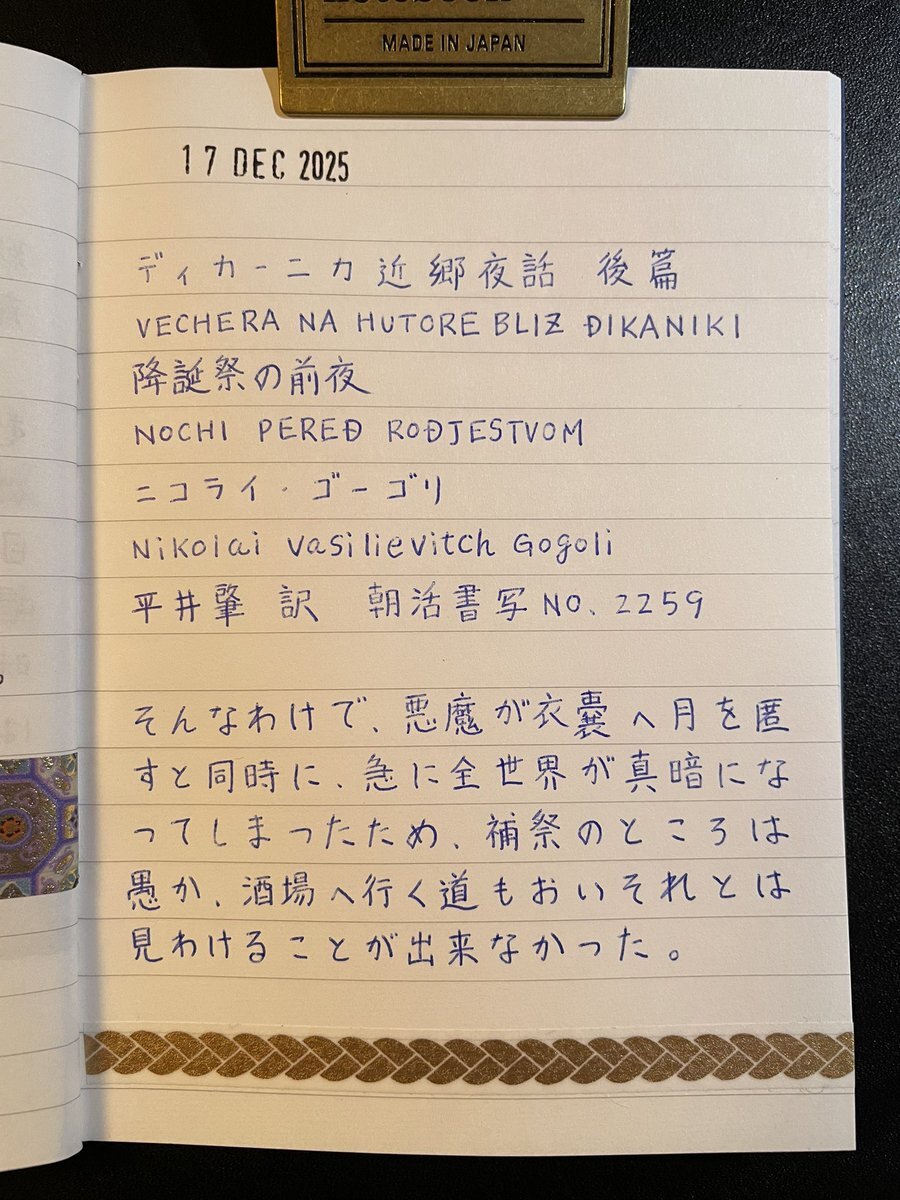 MADE IN JAPAN
17 DEC 2025
ディカーニカ近郷夜話 後篇
VECHERA NA HUTORE BLIZ ĐIKANIKI
降誕祭の前夜
NOCHI PEREĐ ROĐJESTVOM
ニコライ・ゴーゴリ
Nikolai Vasilievitch Gogoli
平井肇 訳 朝活書写 NO. 2259
そんなわけで、悪魔が衣嚢へ月を匿
すと同時に、急に全世界が真暗にな
ってしまったため、補祭のところは
愚か、酒場へ行く道もおいそれとは
見わけることが出来なかった。